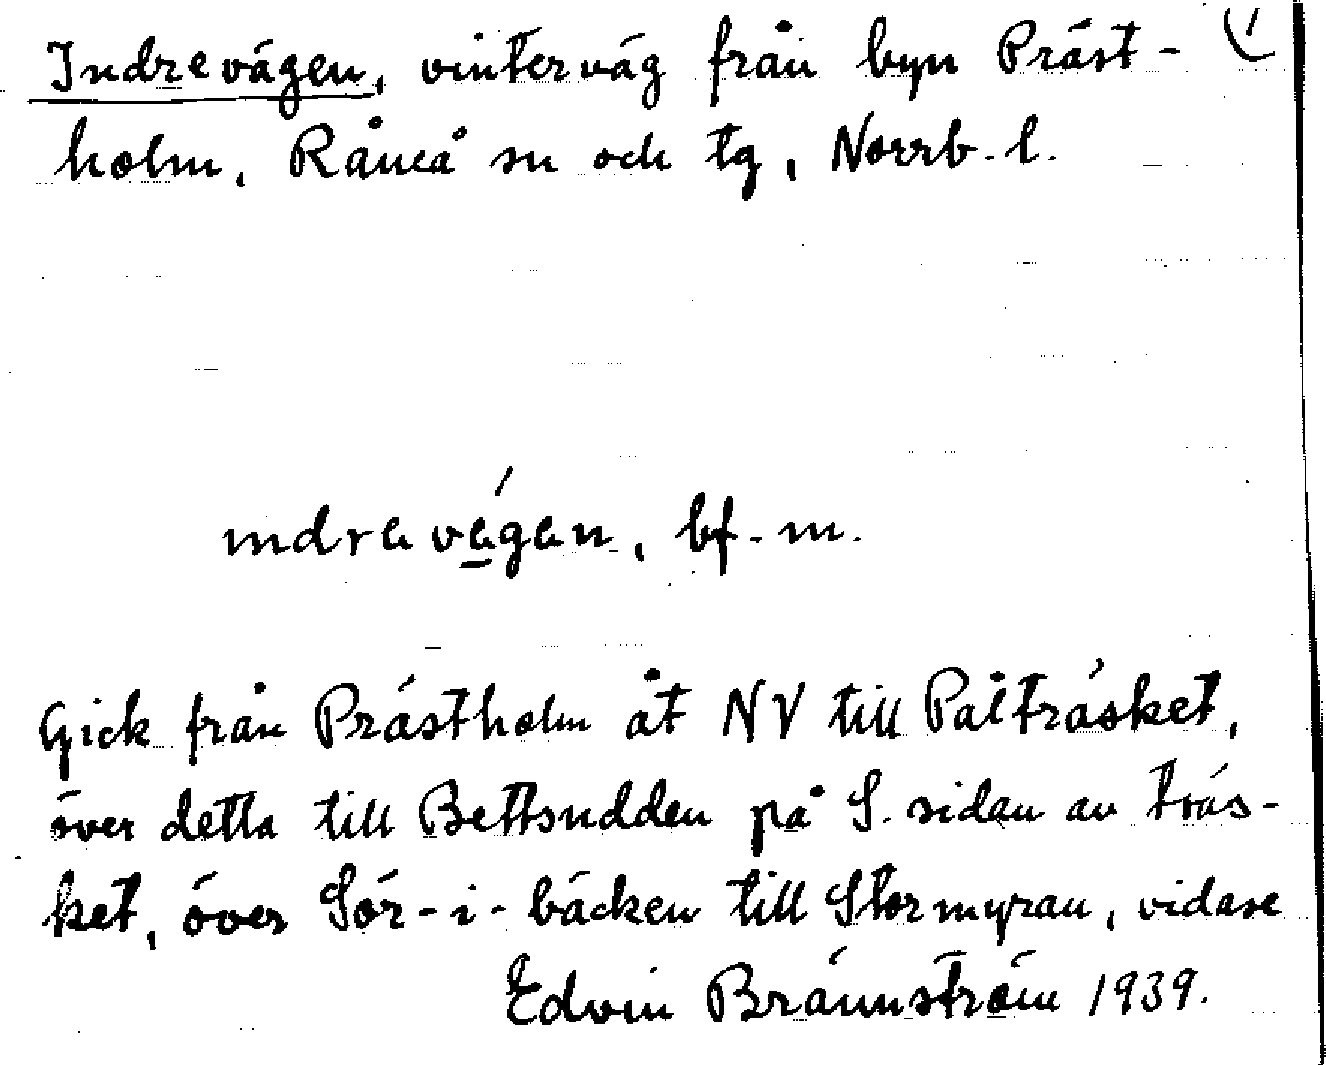 Indrevägen, vinterväg från byn Präst- 1
holm, Råneå sn och tg, Norrb. l.
ındra vägan, bf. m.
Gick från Prästholm åt NV till Pålträsket,
över detta till Bettsudden på S. sidan av träs-
ket, över Sör-i-bäcken till Stormyran, vidare
Edvin Brännström 1939.